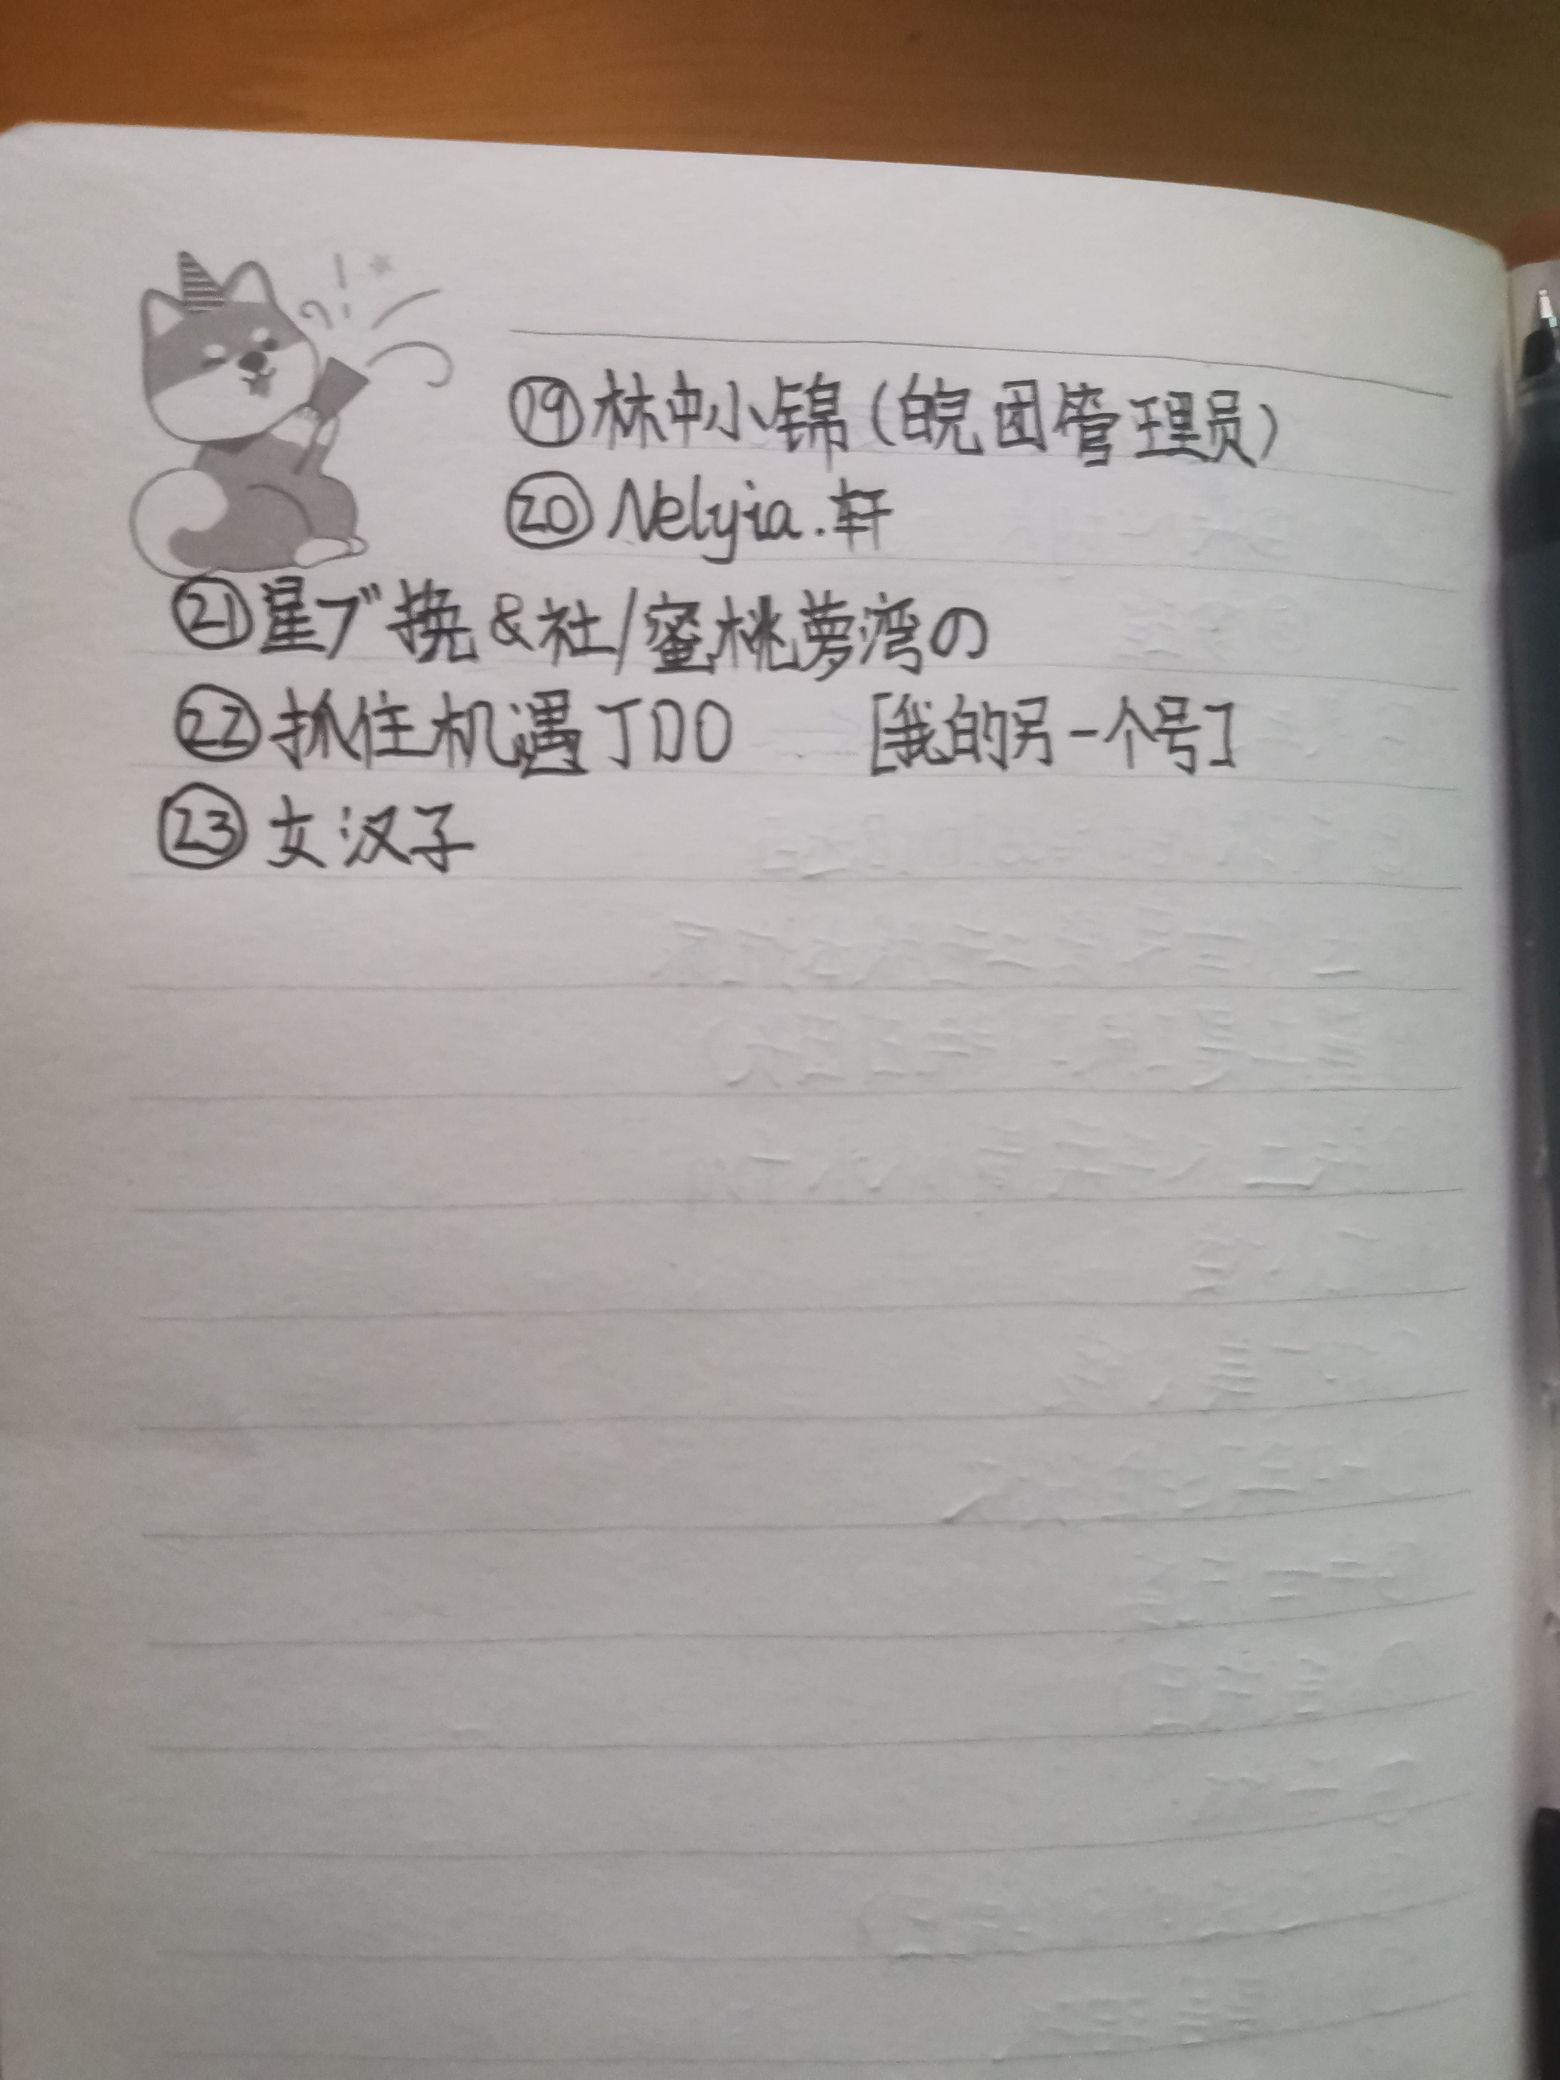 ⑲林中小锦（皖团管理员）
⑳Nelyia.轩
㉑星ブ挽&社/蜜桃萝湾の
㉒抓住机遇JDO [我的另一个号]
㉓女汉子